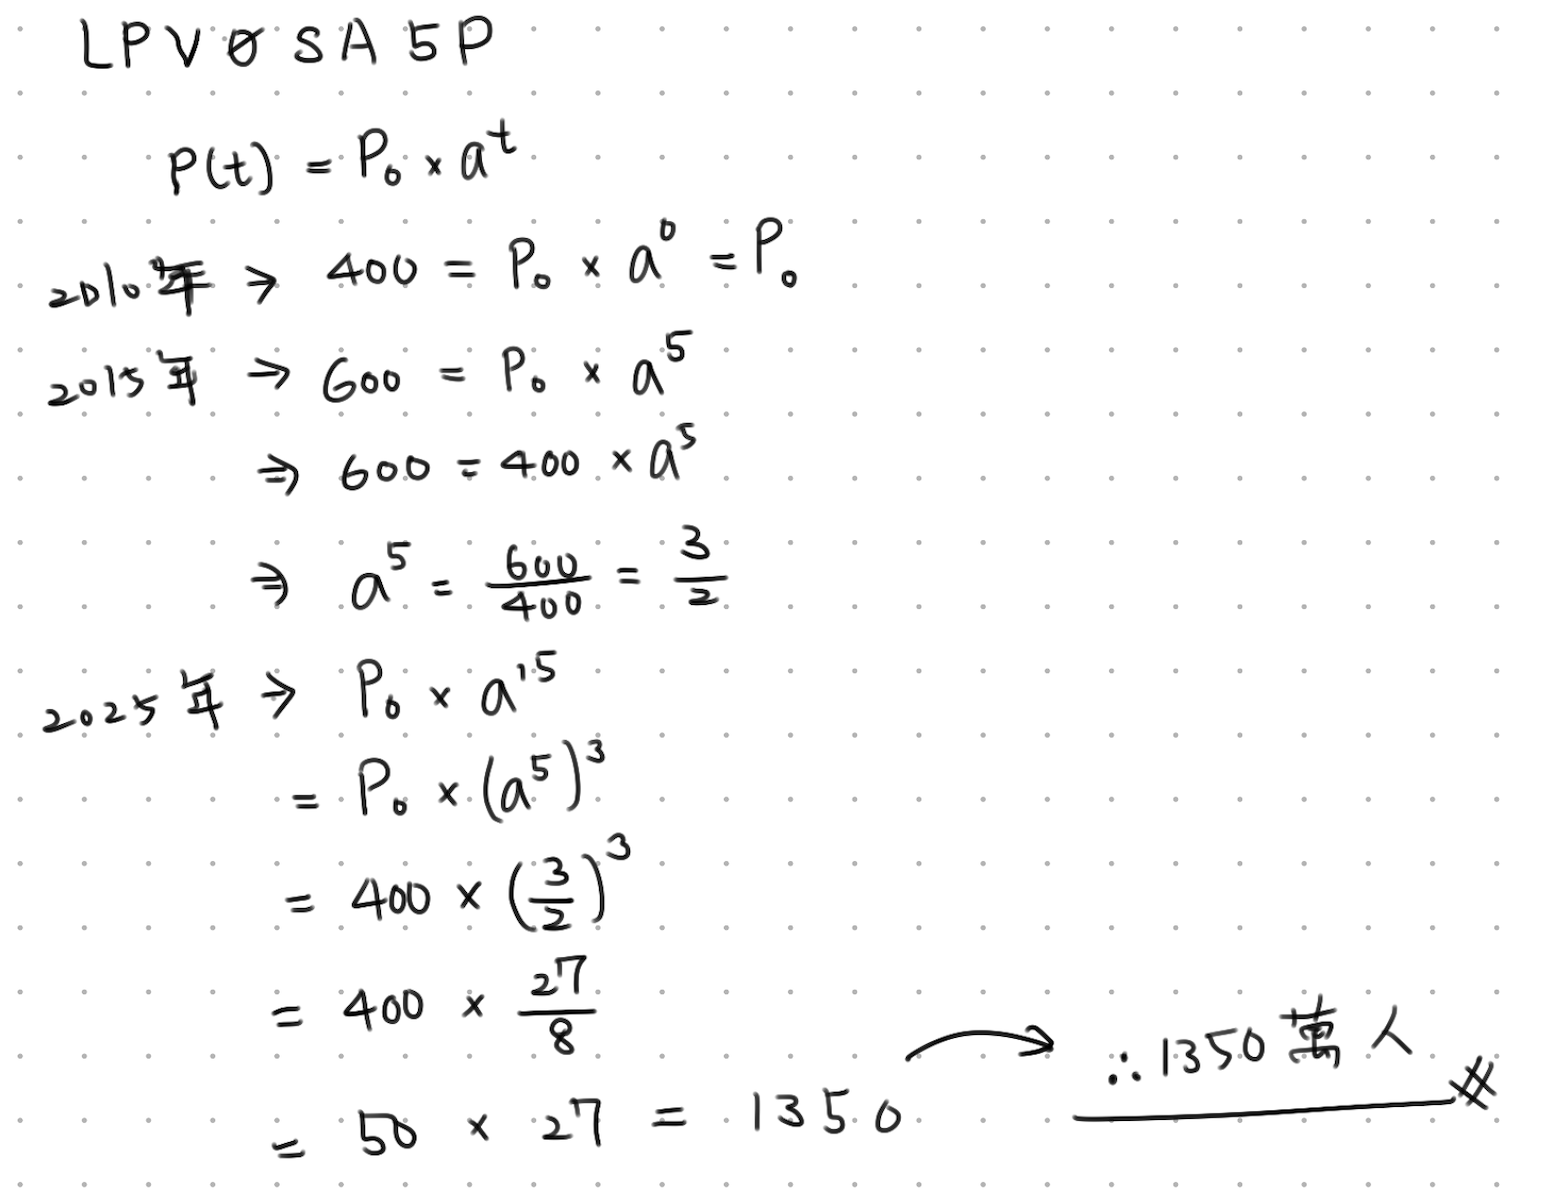 LPVØSA5P
P(t) = P₀ × a^t
2010年 → 400 = P₀ × a⁰ = P₀
2015年 → 600 = P₀ × a⁵
⇒ 600 = 400 × a⁵
⇒ a⁵ = 600/400 = 3/2
2025年 → P₀ × a¹⁵
= P₀ × (a⁵)³
= 400 × (3/2)³
= 400 × 27/8
= 50 × 27 = 1350
∴ 1350 萬人 #